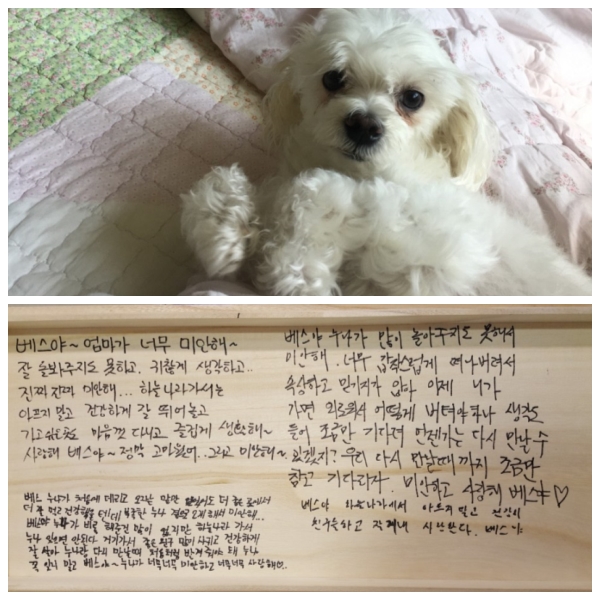 베스야~ 엄마가 너무 미안해~
잘 돌봐주지도 못하고, 귀찮게 생각하고..
진짜 진짜 미안해... 하늘나라 가서는
아프지 말고 건강하게 잘 뛰어놀고
가고 싶은 곳도 마음껏 다니고 즐겁게 생활해~
사랑해 베스야~ 정말 고마웠어.. 그리고 미안해..
베스야 누나가 많이 놀아주지도 못해서
미안해. 너무 갑작스럽게 떠나버려서
속상하고 믿기지가 않아 이제 니가
가면 외로워서 어떻게 버텨야하나 생각도
들어 조금만 기다려 언젠가는 다시 만날 수
있겠지? 우리 다시 만날때 까지 조금만
참고 기다리자. 미안하고 사랑해 베스야♡
베스야 하늘나라에서 아프지 말고 건강히
친구들하고 지내 사랑한다. 베스야
베스 누나가 처음에 데리고 오자는 말만 더 좋은 곳에서
더 잘 먹고 건강했을 텐데 부족한 누나 오게 해서 미안해...
베스야 누나가 비록 해준건 많이 없지만 하늘나라 가서
누나 잊으면 안된다. 거기가서 좋은 친구 많이 사귀고 건강하게
잘 살아 누나랑 다시 만날때 처음처럼 반겨줘야 돼 누나
꼭 잊지 말고 베스야~ 누나가 너무너무 미안하고 너무너무 사랑해♡..